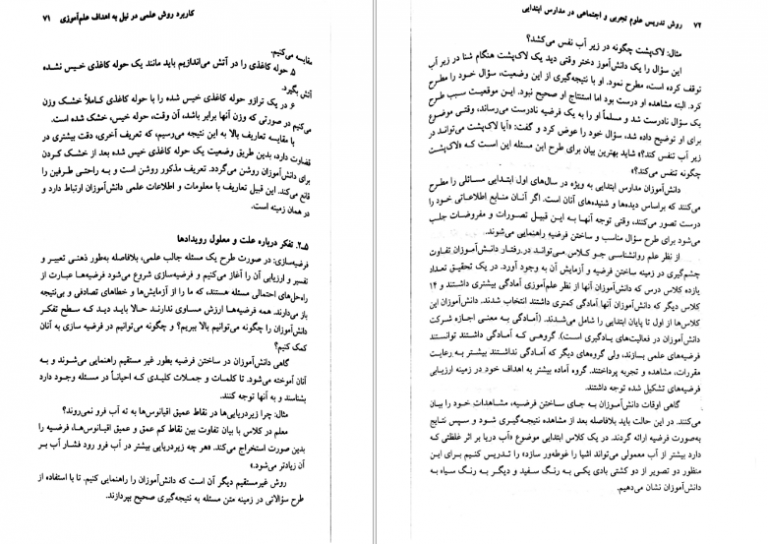 کاربرد روش علمی در نیل به اهداف علم‌آموزی ۷۱
مقایسه می‌کنیم.
۵ حوله کاغذی را در آتش می‌اندازیم باید مانند یک حوله کاغذی خیس نشده
آتش بگیرد.
۶ در یک ترازو حوله کاغذی خیس شده را با حوله کاغذی کاملاً خشک وزن
می‌کنیم در صورتی که وزن آنها برابر باشد، آن وقت، حوله خیس، خشک شده است.
با مقایسه تعاریف بالا به این نتیجه می‌رسیم، که تعریف آخری، دقت بیشتری در
قضاوت دارد، بدین طریق وضعیت یک حوله کاغذی خیس شده بعد از خشک کردن
برای دانش‌آموزان روشن می‌گردد. تعریف مذکور روشن است و به راحتی طرفین را
قانع می‌کند. این قبیل تعاریف با معلومات و اطلاعات علمی دانش‌آموزان ارتباط دارد و
در همان زمینه است.
۲ـ۵. تفکر درباره علت و معلول رویدادها
فرضیه‌سازی: در صورت طرح یک مسئله جالب علمی، بلافاصله به‌طور ذهنی تعبیر و
تفسیر و ارزیابی آن را آغاز می‌کنیم و فرضیه‌سازی شروع می‌شود فرضیه‌ها عبارت از
راه‌حل‌های احتمالی مسئله هستند، که ما را از آزمایش‌ها و خطاهای تصادفی و بی‌نتیجه
باز می‌دارند. همه فرضیه‌ها ارزش مساوی ندارند حالا باید دید که سطح تفکر
دانش‌آموزان را چگونه می‌توانیم بالا ببریم؟ و چگونه می‌توانیم در فرضیه سازی به آنان
کمک کنیم؟
گاهی دانش‌آموزان در ساختن فرضیه بطور غیر مستقیم راهنمایی می‌شوند و به
آنان آموخته می‌شود. تا کلمات و جملات کلیدی که احیاناً در مسئله وجود دارد
بشناسند و به آنها توجه کنند.
مثال: چرا زیردریایی‌ها در نقاط عمیق اقیانوس‌ها به ته آب فرو نمی‌روند؟
معلم در کلاس با بیان تفاوت بین نقاط کم عمق و عمیق اقیانوس‌ها، فرضیه را
بدین صورت استخراج می‌کند. «هر چه زیردریایی بیشتر در آب فرو رود فشار آب بر
آن زیادتر می‌شود.»
روش غیرمستقیم دیگر آن است که دانش‌آموزان را راهنمایی کنیم. تا با استفاده از
طرح سؤالاتی در زمینه متن مسئله به نتیجه‌گیری صحیح بپردازند.
۷۲ روش تدریس علوم تجربی و اجتماعی در مدارس ابتدایی
مثال: لاک‌پشت چگونه در زیر آب نفس می‌کشد؟
این سؤال را یک دانش‌آموز دختر وقتی دید یک لاک‌پشت هنگام شنا در زیر آب
توقف کرده است، مطرح نمود. او با نتیجه‌گیری از این وضعیت، سؤال خود را مطرح
کرد. البته مشاهده او درست بود اما استنتاج او صحیح نبود. این موقعیت سبب طرح
یک سؤال نادرست شد و مسلماً او را به یک فرضیه نادرست می‌رساند، وقتی موضوع
برای او توضیح داده شد، سؤال خود را عوض کرد و گفت: «آیا لاک‌پشت می‌تواند در
زیر آب تنفس کند؟» شاید بهترین بیان برای طرح این مسئله این است که «لاک‌پشت
چگونه تنفس می‌کند؟»
دانش‌آموزان مدارس ابتدایی به ویژه در سال‌های اول ابتدایی مسائلی را مطرح
می‌کنند که براساس دیده‌ها و شنیده‌های آنان است. اگر آنان منابع اطلاعاتی خود را
درست تصور می‌کنند، وقتی توجه آنها به این قبیل تصورات و مفروضات جلب
می‌شود برای طرح سؤال مناسب و ساختن فرضیه راهنمایی می‌شوند.
از نظر علم روانشناسی جو کلاس می‌تواند در رفتار دانش‌آموزان تفاوت
چشم‌گیری در زمینه ساختن فرضیه و آزمایش آن به وجود آورد. در یک تحقیق تعداد
یازده کلاس درس که دانش‌آموزان آنها از نظر علم‌آموزی آمادگی بیشتری داشتند و ۱۴
کلاس دیگر که دانش‌آموزان آنها آمادگی کمتری داشتند انتخاب شدند. دانش‌آموزان این
کلاس‌ها از اول تا پایان ابتدایی را شامل می‌شدند. (آمادگی به معنی اجازه شرکت
دانش‌آموزان در فعالیت‌های یادگیری است). گروهی که آمادگی داشتند توانستند
فرضیه‌های علمی بسازند، ولی گروه‌های دیگر که آمادگی نداشتند بیشتر به رعایت
مقررات، مشاهده و تجربه پرداختند. گروه آماده بیشتر به اهداف خود در زمینه ارزیابی
فرضیه‌های تشکیل شده توجه داشتند.
گاهی اوقات دانش‌آموزان به جای ساختن فرضیه، مشاهدات خود را بیان
می‌کنند. در این حالت باید بلافاصله بعد از مشاهده نتیجه‌گیری شود و سپس نتایج
به‌صورت فرضیه ارائه گردند. در یک کلاس ابتدایی موضوع «آب دریا بر اثر غلظتی که
دارد بیشتر از آب معمولی می‌تواند اشیا را غوطه‌ور سازد» را تدریس کنیم برای این
منظور دو تصویر از دو کشتی بادی یکی به رنگ سفید و دیگر به رنگ سیاه به
دانش‌آموزان نشان می‌دهیم.